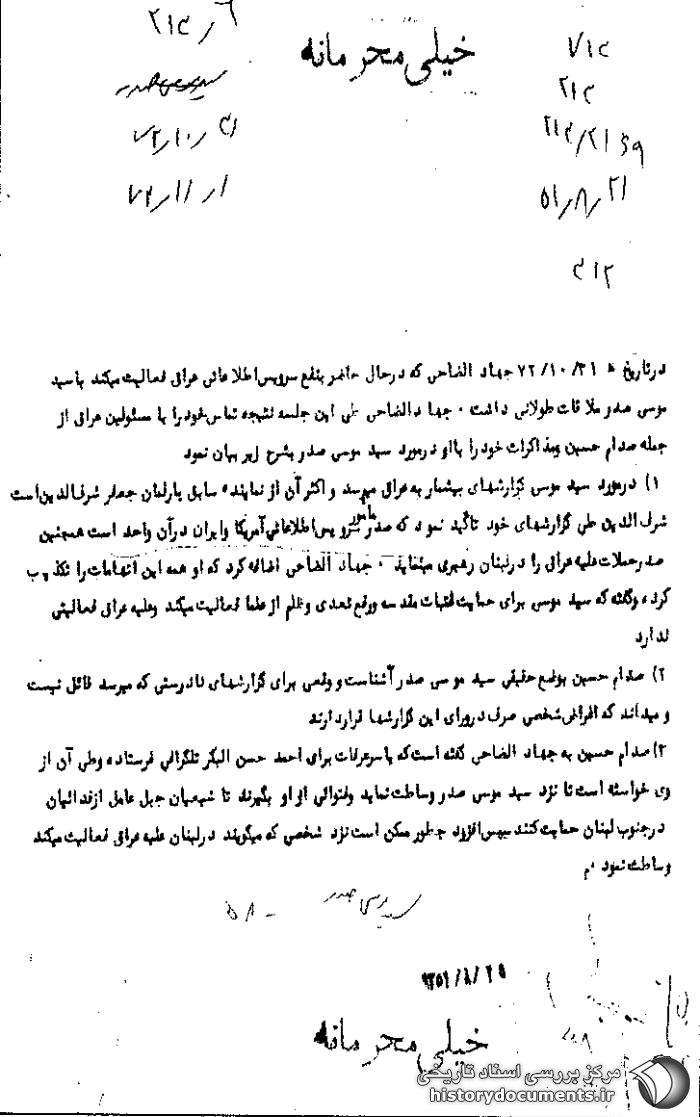 خیلی محرمانه
۲۱۳
سید موسی صدر
۷۲٫۱۰٫۳۱
۷۲٫۱۱٫۱
۷۱۲
۲۱۳
۵۱٫۸٫۲۱
۳۱۲
درتاریخ ۷۲/۱۰/۳۱ جهاد الضاحی که درحال حاضر بنفع سرویس اطلاعاتی عراق فعالیت میکند با سید
موسی صدر ملاقات طولانی داشت ۰ جهاد الضاحی طی این جلسه نتیجه تماس خود را با مسئولین عراق از
جمله صدام حسین ومذاکرات خود را با او درمورد سید موسی صدر بشرح زیر بیان نمود
۱) درمورد سید موسی گزارشهای بیشمار به عراق میرسد و اکثر آن از نماینده سابق پارلمان جعفر شرف الدین است
شرف الدین طی گزارشهای خود تأکید نموده که صدر مامور سرویس اطلاعاتی آمریکا وایران درآن واحد است همچنین
صدر حملات علیه عراق را درلبنان رهبری مینماید ۰ جهاد الضاحی اضافه کرد که او همه این اتهامات را تکذیب
کرده وگفته که سید موسی برای حمایت عتبات مقدسه ورفع تعدی وظلم از علما فعالیت میکند وعلیه عراق فعالیتی
ندارد
۲) صدام حسین بوضع حقیقی سید موسی صدر آشناست و وقعی برای گزارشهای نادرستی که میرسد قائل نیست
و میداند که اغراض شخصی صرف درورای این گزارشها قرار دارند
۳) صدام حسین به جهاد الضاحی گفته است که یاسرعرفات برای احمد حسن البکر تلگرافی فرستاده وطی آن از
وی خواسته است تا نزد سید موسی صدر وساطت نماید وفتوائی از او بگیرند تا شیعیان جبل عامل ازفدائیان
درجنوب لبنان حمایت کنند سپس افزود چطور ممکن است نزد شخصی که میگویند درلبنان علیه عراق فعالیت میکند
وساطت نمود ۰م
سید موسی صدر - ۵۸
۱۳۵۱/۸/۲۵
خیلی محرمانه
مرکز بررسی اسناد تاریخی
historydocuments.ir